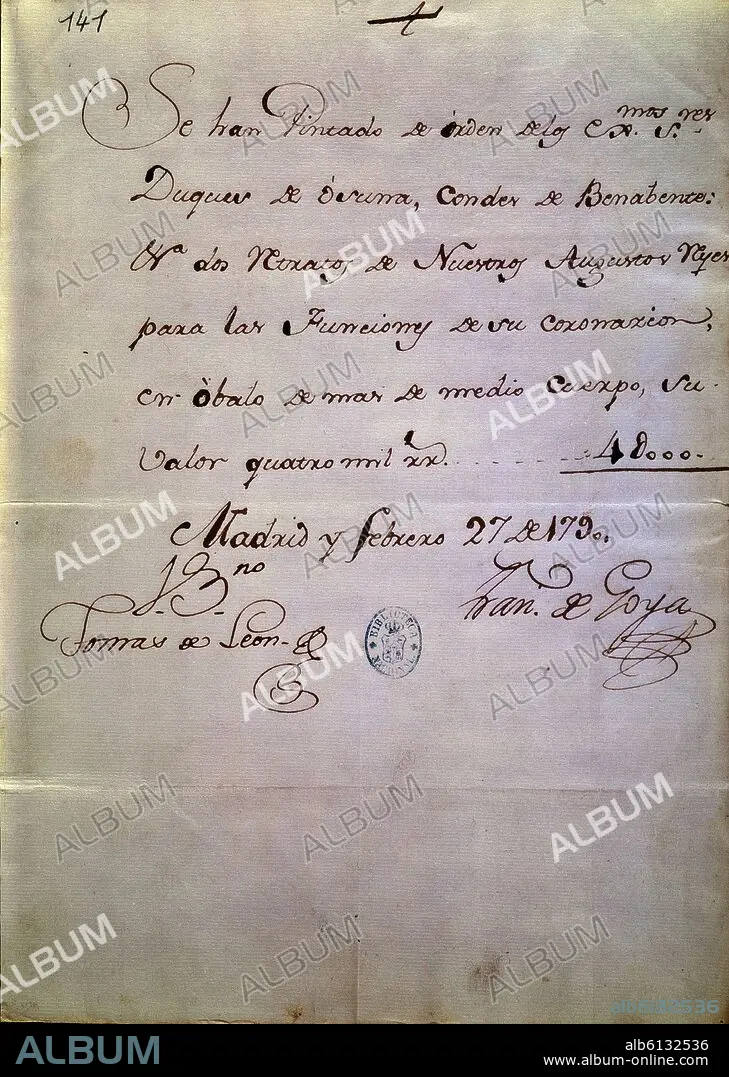 141
Se han Pintado de órden delos Exmos. Sres.
Duques de Ósuna, Condes de Benabente:
dos Retratos de Nuestros Augustos Reyes
para las Funciones de su coronacion,
en óbalo de mas de medio cuerpo, su
Valor quatro mil rr. 4000.
Madrid y febrero 27 de 1790.
Vº Bno
Fran. de Goya
Tomas de Leon
BIBLIOTECA
ALBUM
alb6132536
ALBUM
alb6132536
www.album-online.com